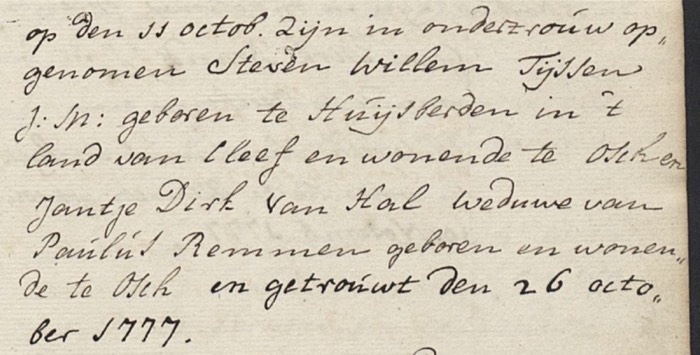 op den 11 octob. Zijn in ondertrouw op„
genomen Steven Willem Tijssen
J: M: geboren te Huijsberden in 't
land van Cleef en wonende te Osch en
Jantje Dirk van Hal weduwe van
Paulus Remmen geboren en wonen„
de te Osch en getrouwt den 26 octo„
ber 1777.